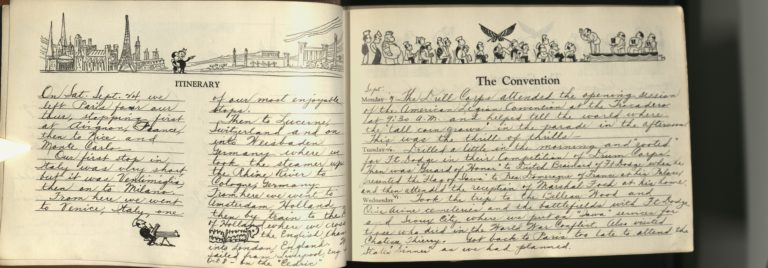 ITINERARY
On Sat. Sept. 24 we
left Paris for our
tour, stopping first
at Avignon, France,
then to Nice and
Monte Carlo.
Our first stop in
Italy was very short
but it was Ventimiglia
then on to Milano.
From here we went
to Venice, Italy, one
of our most enjoyable
stops.
Then to Lucerne,
Switzerland and on
into Weisbaden
Germany where we
took the steamer up
the Rhine River to
Cologne, Germany.
From here we went to
Amsterdam, Holland
then by train to the
of Holland where we cross
the English Chan
into London England.
sailed from Liverpool, Eng
on the "Cedric"
The Convention
Sept.
Monday The Drill Corps attended the opening session
of the American Legion Convention at the Trocadero
at 9:30 A.M. and helped tell the world where
the tall corn grows in the parade in the afternoon
This was the thrill of thrills.
Tuesday Drilled a little in the morning and rooted
for Ft. Dodge in their competition of Drum Corps.
Then was Guard of Honor to United President of Ft Dodge when he
presented the Flag of Iowa to Pres. Doumergue of France at his Palace,
and then attended the reception of Marshal Foch at his home
Wednesday Took the trip to the Belleau Wood and
Oise-Aisne cemeteries and the battlefields with Ft. Dodge
and Sioux City where we put on "Iowa" service for
those who died in the World War Conflict. Also visited
Chateau Thierry. Got back to Paris too late to attend the
States Dinner as we had planned.